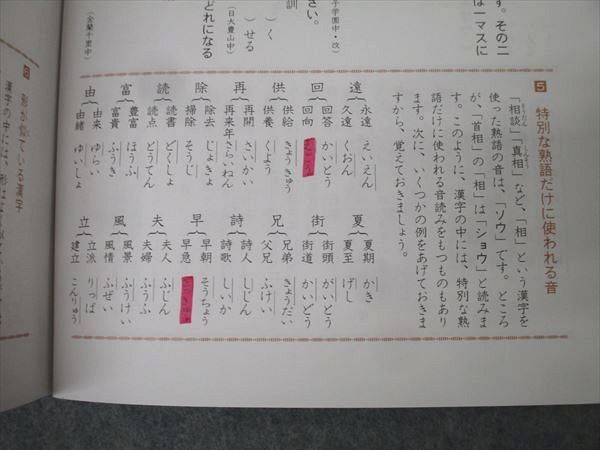 す。その二
は一マスに
子学園中・改)
さい。
訓
)く
)せる
(日大豊山中)
どれになる
(金蘭千里中)
5 特別な熟語だけに使われる音
「相談」「真相」など、「相」という漢字を
使った熟語の音は、「ソウ」です。ところ
が、「首相」の「相」は「ショウ」と読みま
す。このように、漢字の中には、特別な熟
語だけに使われる音読みをもつものもあり
ます。次に、いくつかの例をあげておきま
すから、覚えておきましょう。
遠 永遠 えいえん
久遠 くおん
回 回答 かいとう
回向 えこう
供 供給 きょうきゅう
供養 くよう
再 再開 さいかい
再来年 さらいねん
除 除去 じょきょ
掃除 そうじ
読 読書 どくしょ
読点 とうてん
富 豊富 ほうふ
富貴 ふうき
由 由来 ゆらい
由緒 ゆいしょ
夏 夏期 かき
夏至 げし
街 街頭 がいとう
街道 かいどう
兄 兄弟 きょうだい
父兄 ふけい
詩 詩人 しじん
詩歌 しいか
早 早朝 そうちょう
早急 さっきゅう
夫 夫人 ふじん
夫婦 ふうふ
風 風景 ふうけい
風情 ふぜい
立 立派 りっぱ
建立 こんりゅう
6 形が似ている漢字
漢字の中には、形は